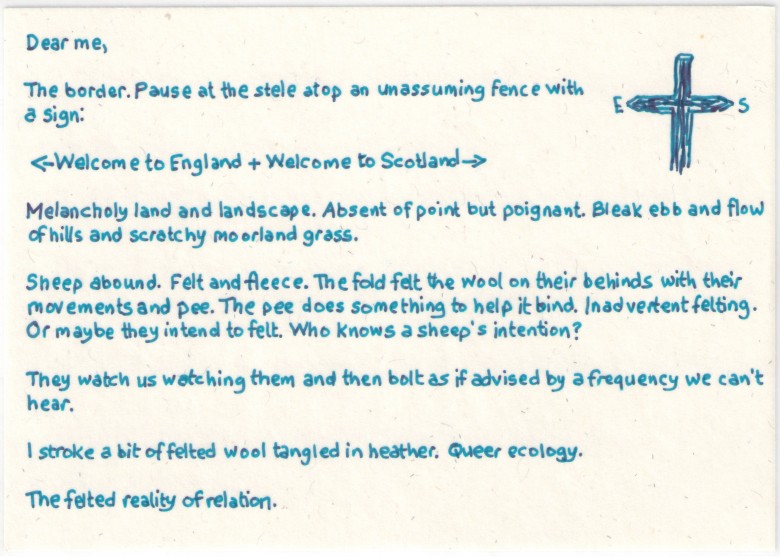 Dear me,
The border. Pause at the stele atop an unassuming fence with
a sign:
E S
<-Welcome to England + Welcome to Scotland->
Melancholy land and landscape. Absent of point but poignant. Bleak ebb and flow
of hills and scratchy moorland grass.
Sheep abound. Felt and fleece. The fold felt the wool on their behinds with their
movements and pee. The pee does something to help it bind. Inadvertent felting.
Or maybe they intend to felt. Who knows a sheep's intention?
They watch us watching them and then bolt as if advised by a frequency we can't
hear.
I stroke a bit of felted wool tangled in heather. Queer ecology.
The felted reality of relation.